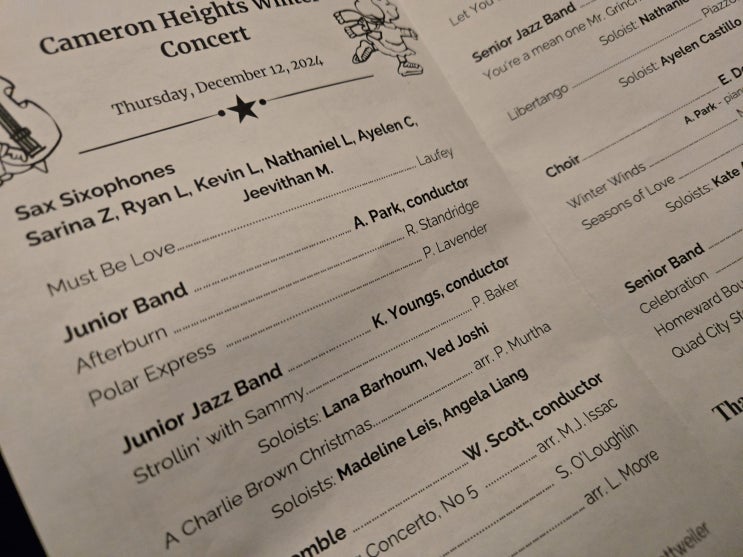 Cameron Heights Winter
Concert
Thursday, December 12, 2024
Sax Sixophones
Sarina Z, Ryan L, Kevin L, Nathaniel L, Ayelen C,
Jeevithan M.
Must Be Love Laufey
Junior Band A. Park, conductor
Afterburn R. Standridge
Polar Express P. Lavender
Junior Jazz Band K. Youngs, conductor
Strollin' with Sammy P. Baker
Soloists: Lana Barhoum, Ved Joshi
A Charlie Brown Christmas arr. P. Murtha
Soloists: Madeline Leis, Angela Liang
W. Scott, conductor
Concerto, No 5 arr. M.J. Issac
S. O'Loughlin
arr. L. Moore
Let You
Senior Jazz Band
You're a mean one Mr. Grinch
Soloist: Nathaniel
Libertango Piazzo
Soloist: Ayelen Castillo
E. D
A. Park - pian
Choir
Winter Winds
Seasons of Love
Soloists: Kate
Senior Band
Celebration
Homeward Bou
Quad City St
Tha